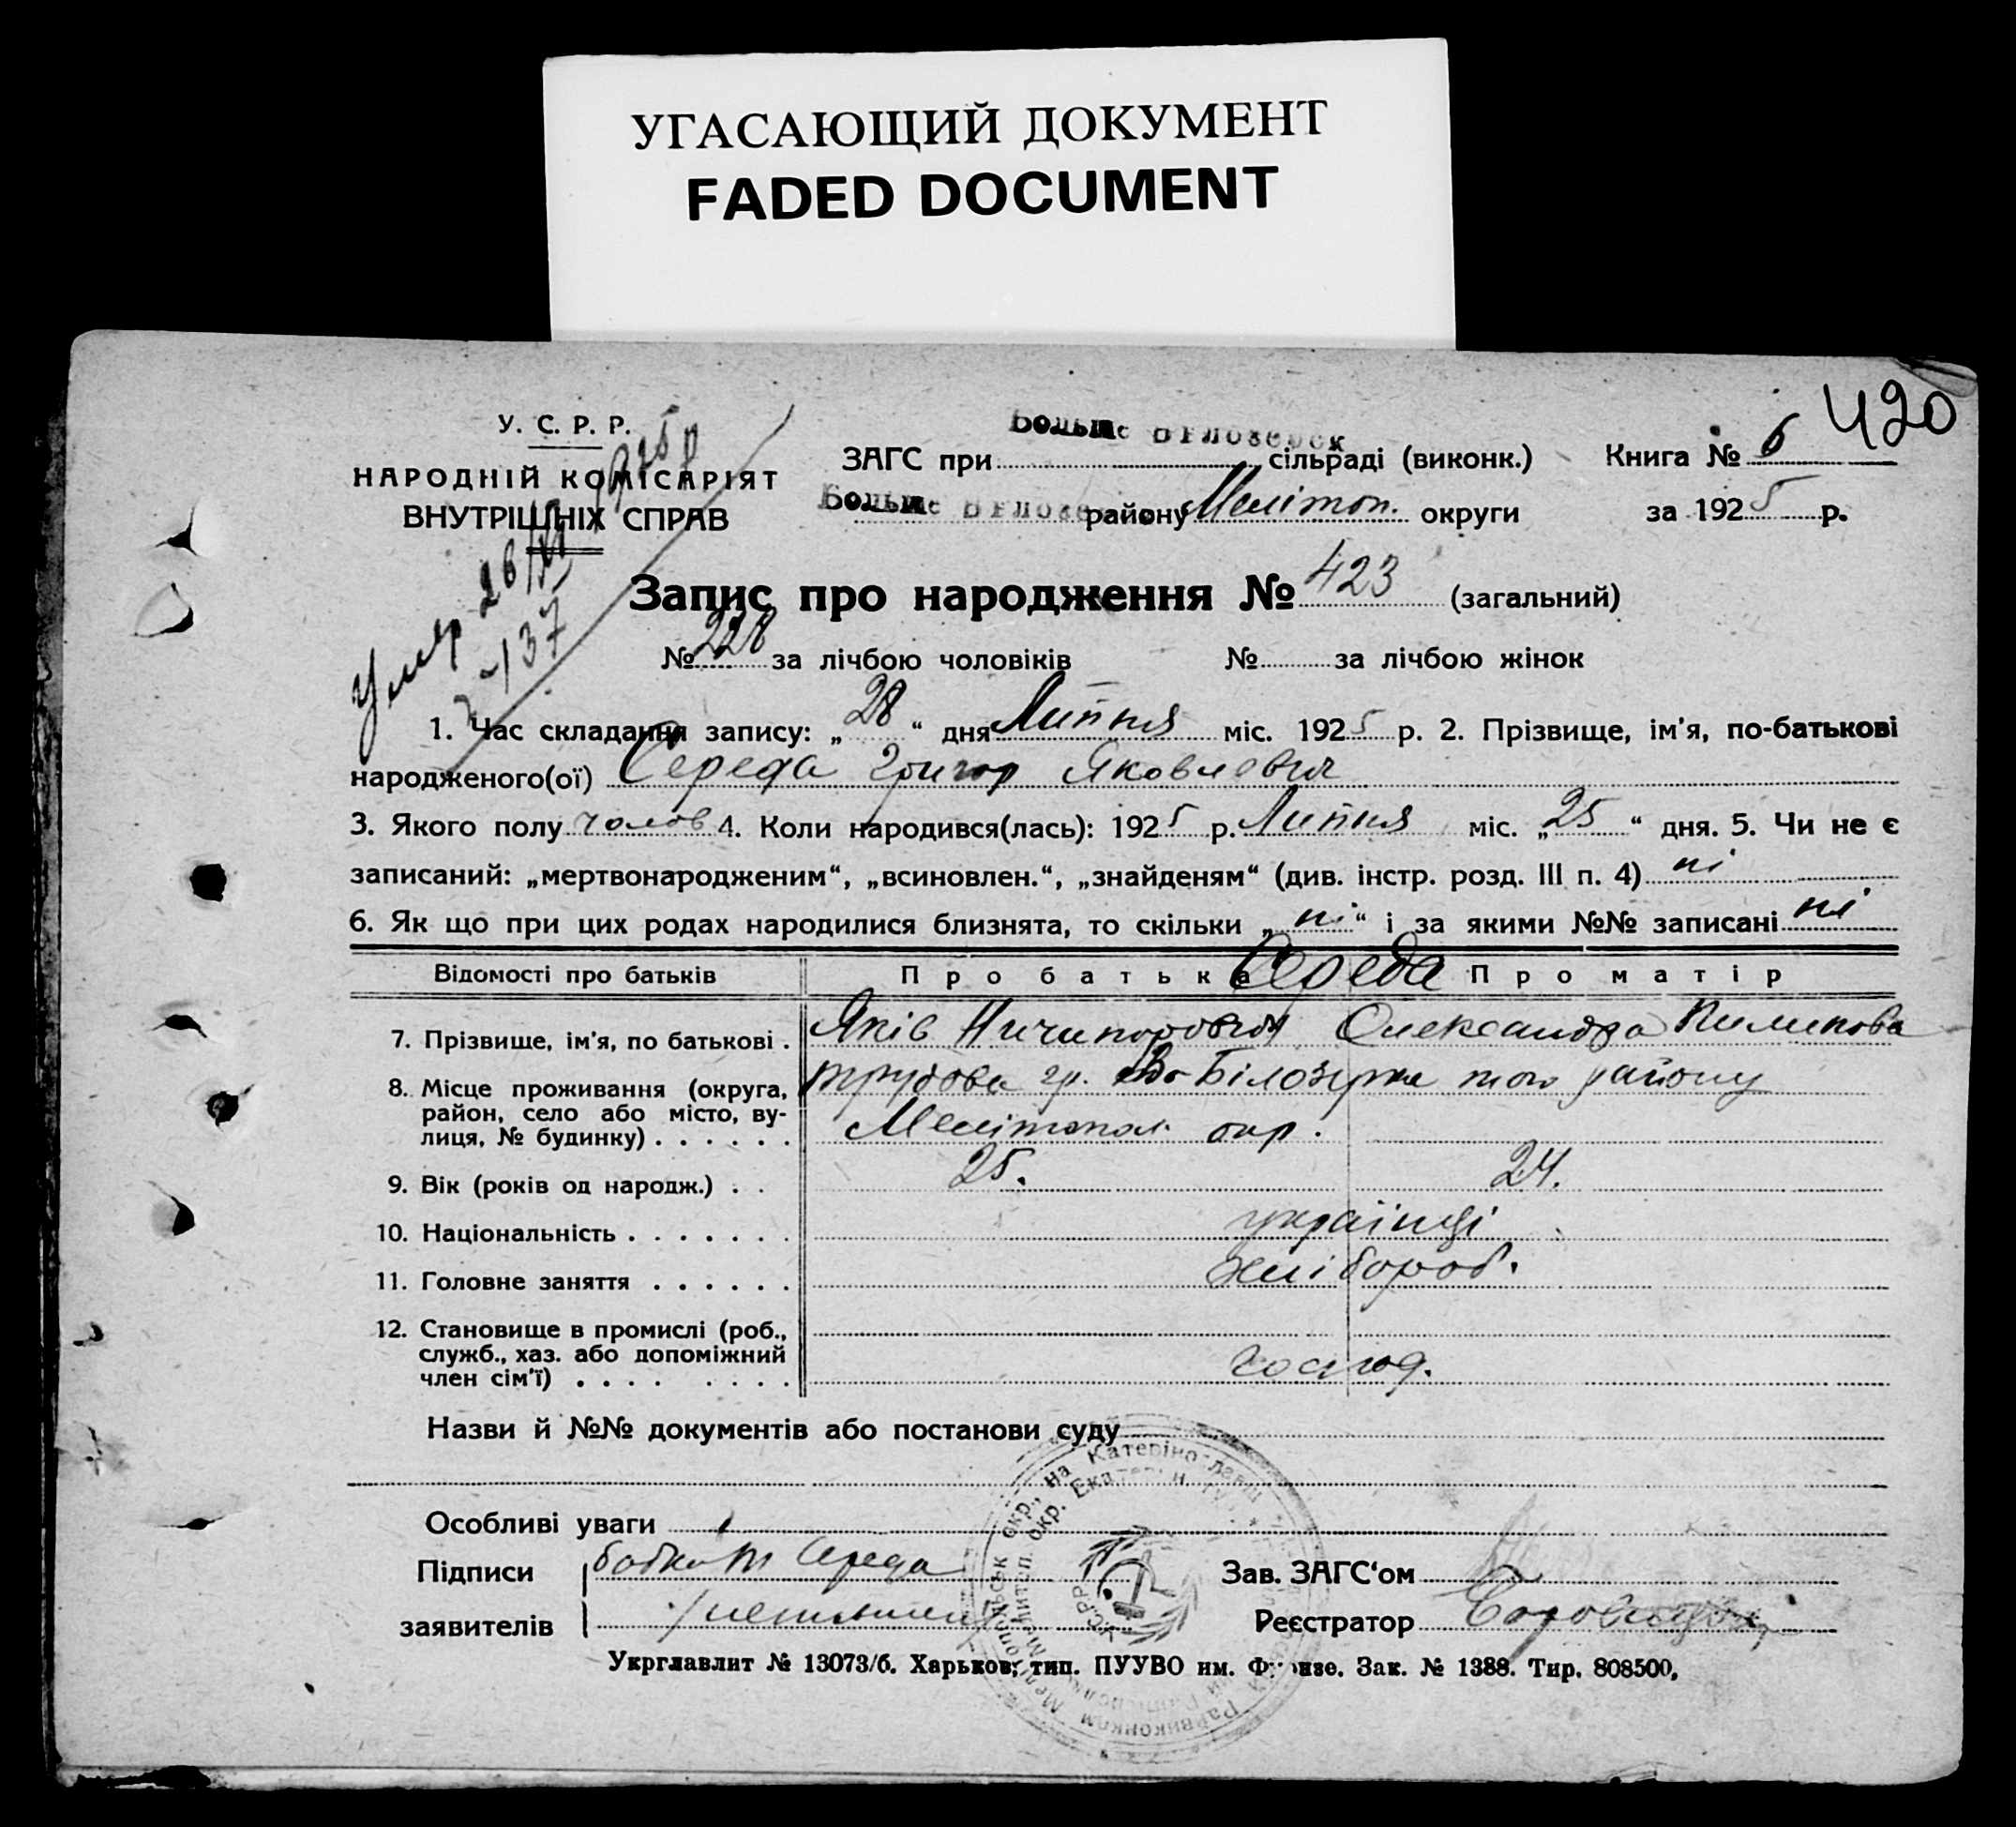 УГАСАЮЩИЙ ДОКУМЕНТ
FADED DOCUMENT
420
У. С. Р. Р.
НАРОДНІЙ КОМІСАРІЯТ
ВНУТРІШНІХ СПРАВ
Умер 26/VII 1925 р
№ 137
ЗАГС при Больше Білозерск сільраді (виконк.) Книга № 6
Больше Білозе району Мелітоп. округи за 1925 р.
Запис про народження № 423 (загальний)
№ 228 за лічбою чоловіків № за лічбою жінок
1. Час складання запису: „28“ дня Липня міс. 1925 р. 2. Прізвище, ім'я, по-батькові
народженого(ої) Середа Григор Яковлевич
3. Якого полу чолов 4. Коли народився(лась): 1925 р. Липня міс. „25“ дня. 5. Чи не є
записаний: „мертвонародженим“, „всиновлен.“, „знайденям“ (див. інстр. розд. III п. 4) ні
6. Як що при цих родах народилися близнята, то скільки „ні“ і за якими №№ записані ні
Відомості про батьків Про батька Про матір
Середа
7. Прізвище, ім'я, по батькові . Яків Ничипорович Олександра
8. Місце проживання (округа, гр. Білозерка того району
район, село або місто, ву-
лиця, № будинку) . . . . . . Мелітопол. окр.
9. Вік (років од народж.) . . 25. 24.
10. Національність . . . . . . . українці
11. Головне заняття . . . . . . хлібороб.
12. Становище в промислі (роб.,
служб., хаз. або допоміжний
член сім'ї) . . . . . . . . господ.
Назви й №№ документів або постанови суду
Особливі уваги
Підписи Середа Зав. ЗАГС'ом
заявителів Реєстратор
Укрглавлит № 13073/б. Харьков, тип. ПУУВО им. Фрунзе. Зак. № 1388. Тир. 808500,